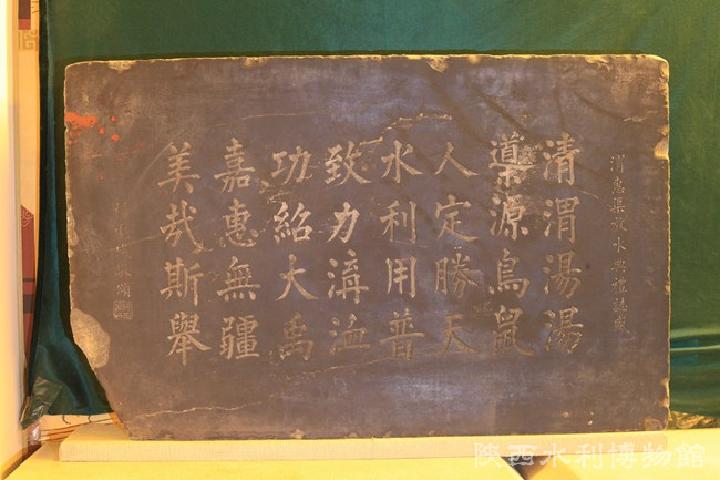 渭惠渠放水典禮誌盛
清渭湯湯
導源鳥鼠
人定勝天
水利用普
致力溝洫
功紹大禹
嘉惠無疆
美哉斯舉
陝西水利博物館